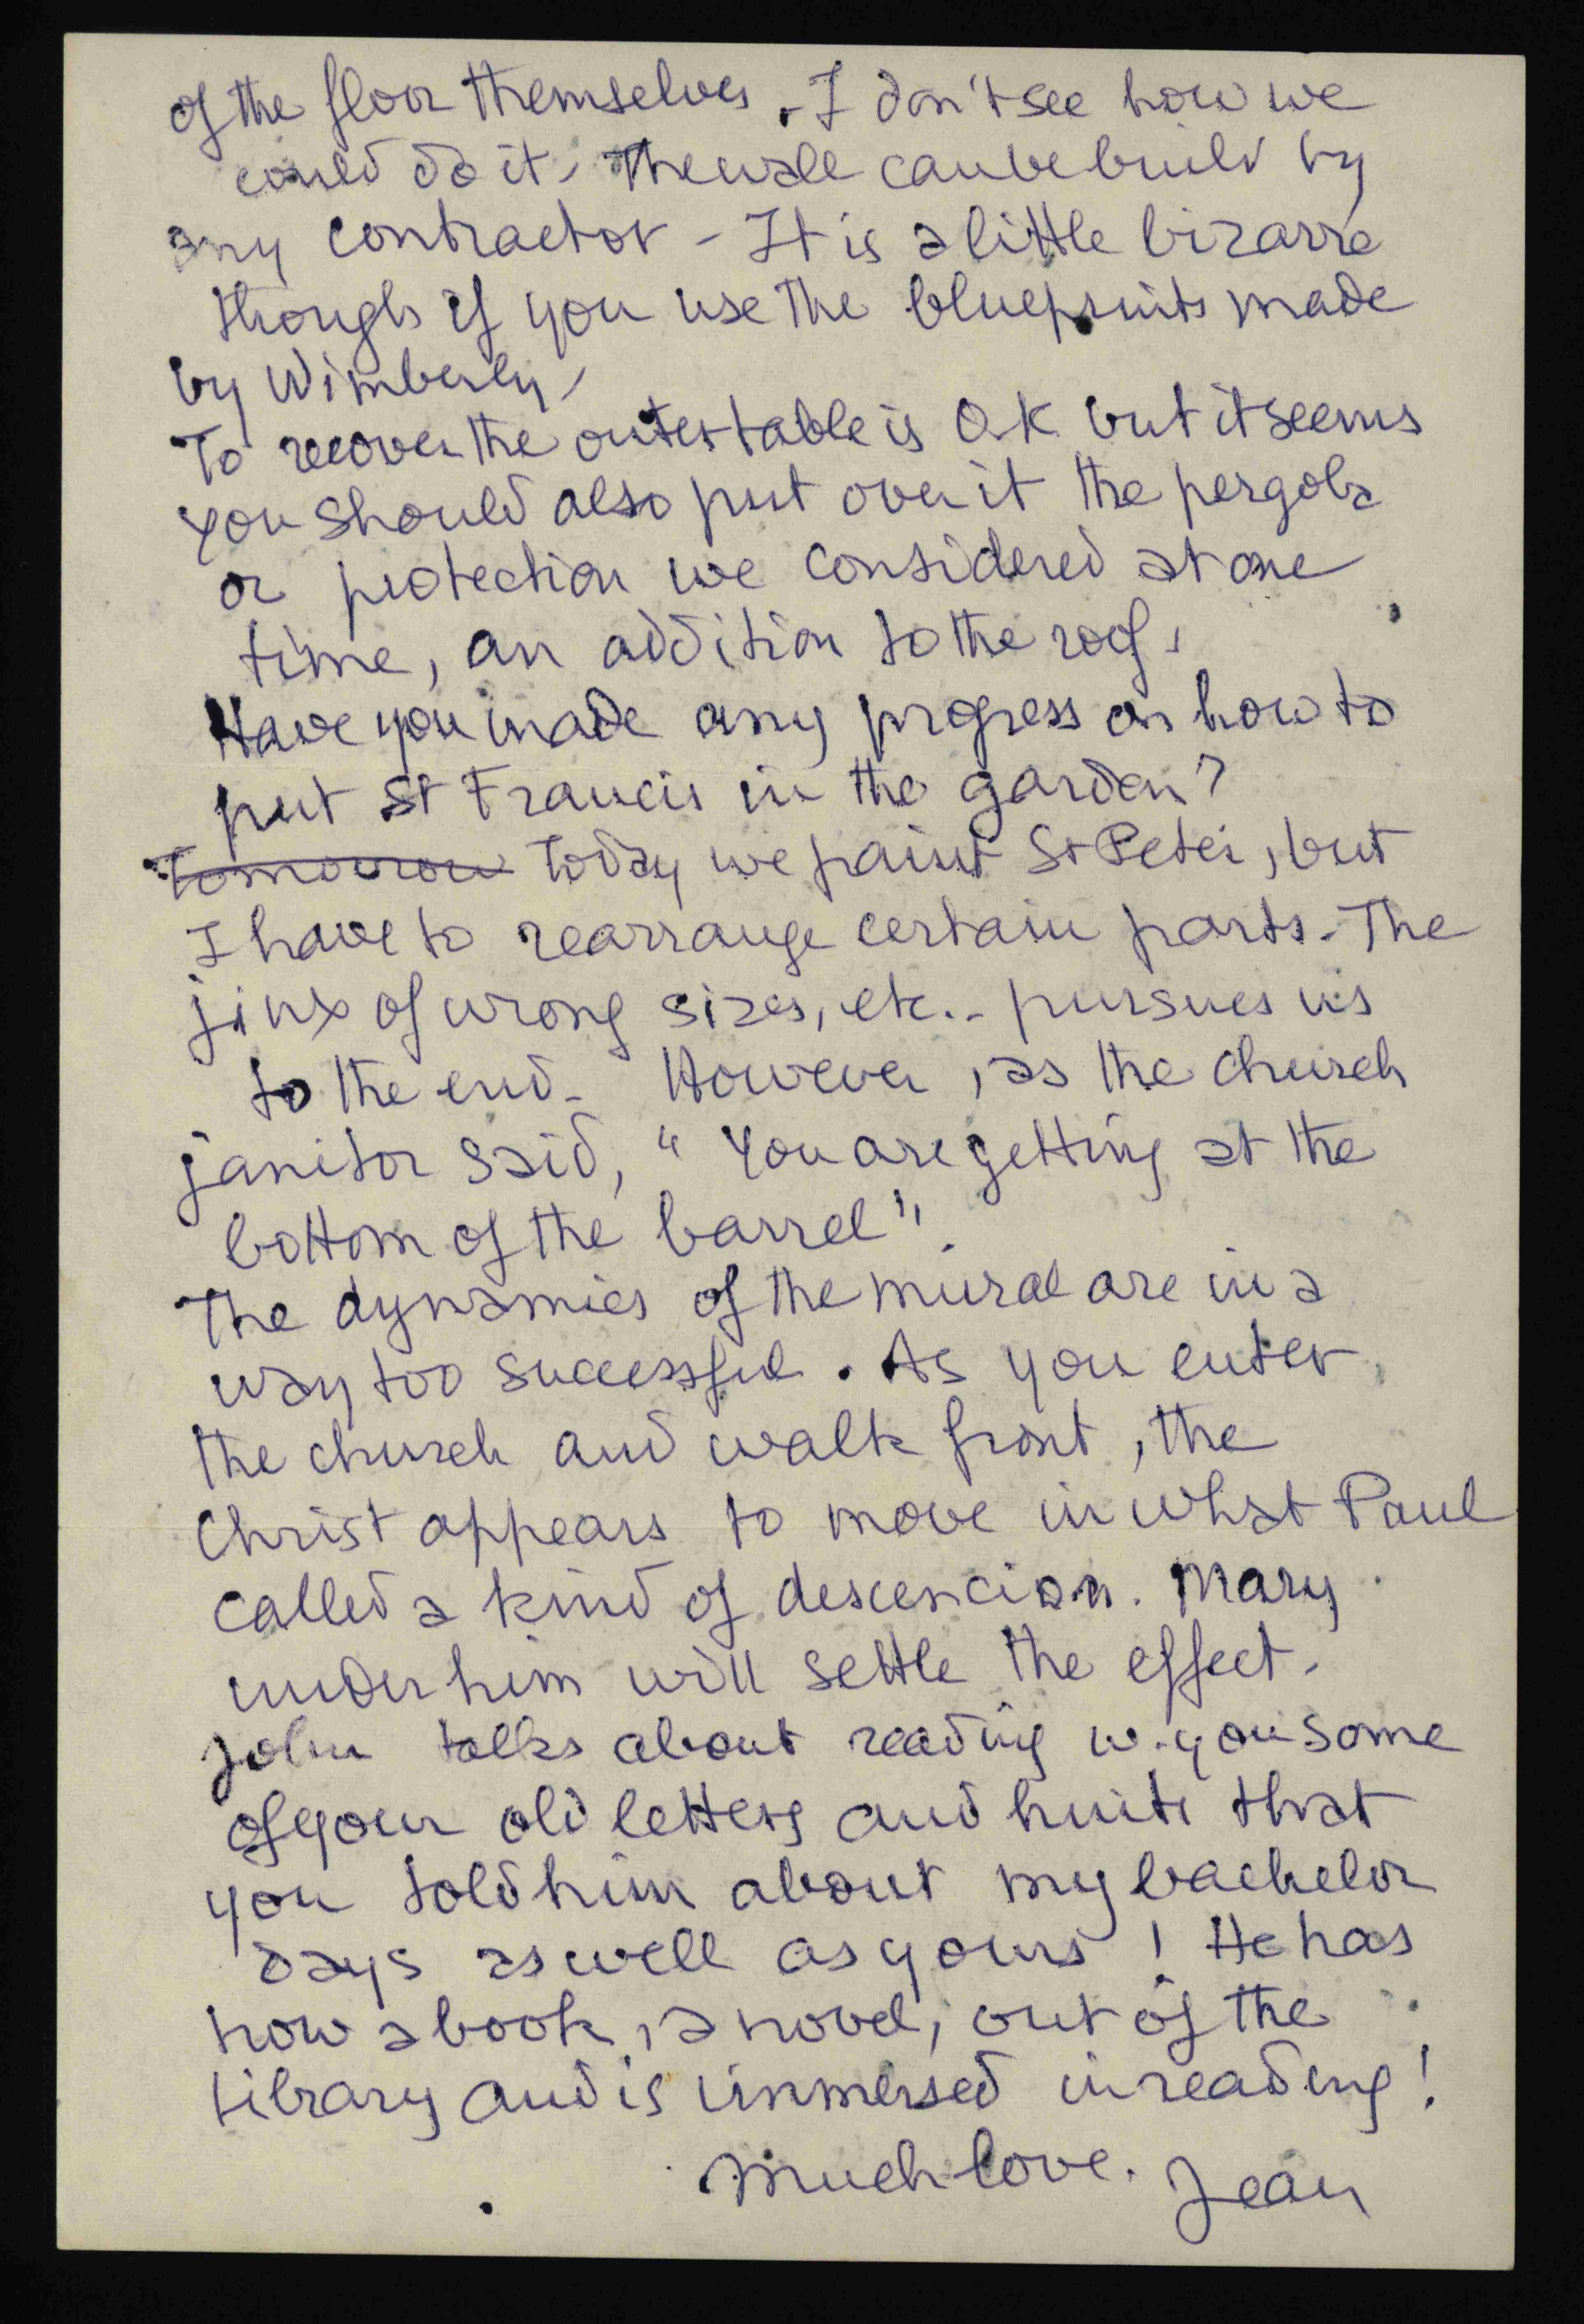 of the floor themselves. I don't see how we
could do it. The wall can be built by
any contractor - It is a little bizarre
though if you use the blueprints made
by Wimberly.
To recover the outer table is O.K but it seems
you should also put over it the pergola
or protection we considered at one
time, an addition to the roof.
Have you made any progress on how to
put St Francis in the garden?
Tomorrow Today we paint St Peter, but
I have to rearrange certain parts. The
jinx of wrong sizes, etc.. pursues us
to the end. However, as the church
janitor said, "You are getting at the
bottom of the barrel".
The dynamics of the mural are in a
way too successful. As you enter
the church and walk front, the
Christ appears to move in what Paul
called a kind of descencion. Mary
under him will settle the effect.
John talks about reading w. you some
of your old letters and hints that
you told him about my bachelor
days as well as yours! He has
now a book, a novel, out of the
library and is immersed in reading!
Much love. Jean